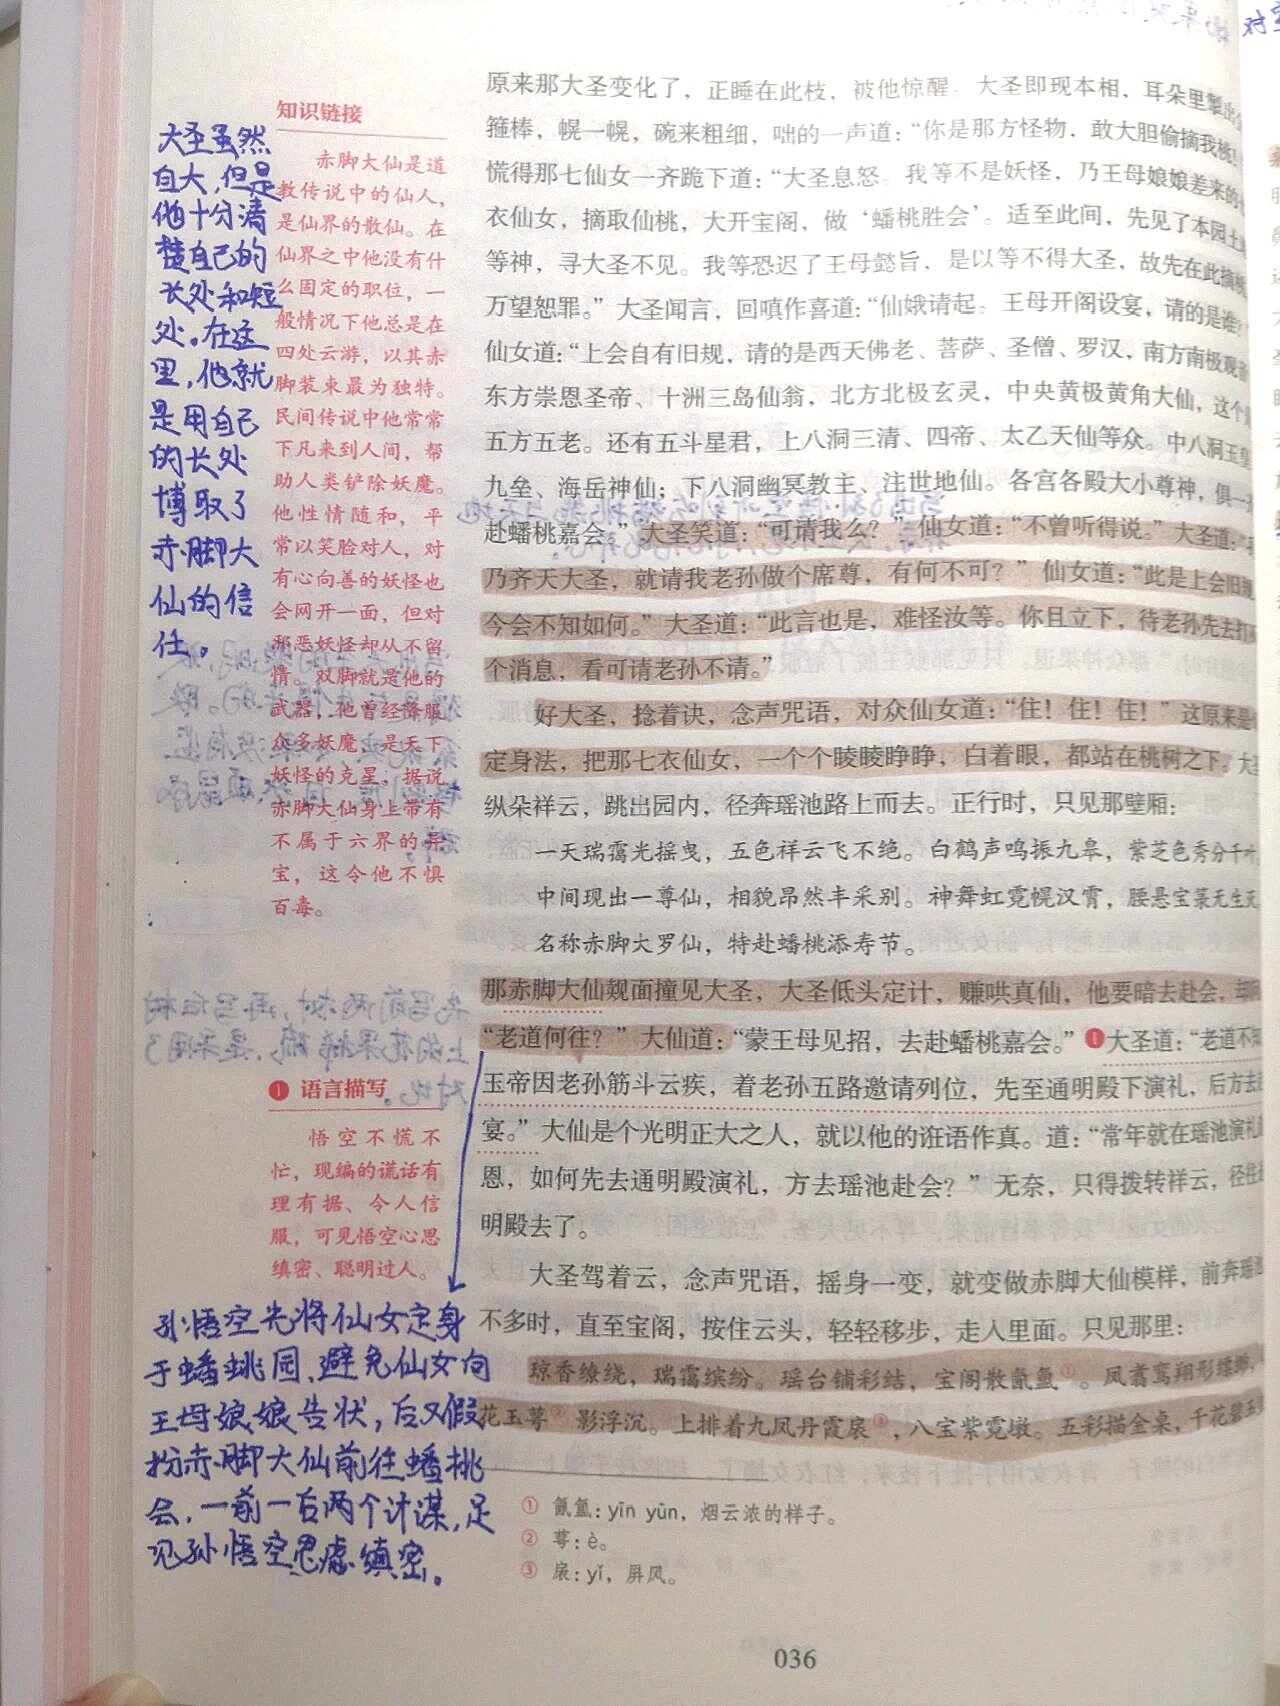 大圣虽然
自大，但是
他十分清
楚自己的
长处和短
处。在这
里，他就
是用自己
的长处
博取了
赤脚大
仙的信
任。
知识链接
赤脚大仙是道
教传说中的仙人，
是仙界的散仙。在
仙界之中他没有什
么固定的职位，一
般情况下他总是在
四处云游，以其赤
脚装束最为独特。
民间传说中他常常
下凡来到人间，帮
助人类铲除妖魔。
他性情随和，平
常以笑脸对人，对
有心向善的妖怪也
会网开一面，但对
邪恶妖怪却从不留
情。双脚就是他的
武器，他曾经降服
众多妖魔，是天下
妖怪的克星，据说
赤脚大仙身上带有
不属于六界的异
宝，这令他不惧
百毒。
❶ 语言描写
悟空不慌不
忙，现编的谎话有
理有据、令人信
服，可见悟空心思
缜密、聪明过人。
孙悟空先将仙女定身
于蟠桃园，避免仙女向
王母娘娘告状，后又假
扮赤脚大仙前往蟠桃
会，一前一后两个计谋，足
见孙悟空思虑缜密。
原来那大圣变化了，正睡在此枝，被他惊醒。大圣即现本相，耳朵里掣出
箍棒，幌一幌，碗来粗细，咄的一声道：“你是那方怪物，敢大胆偷摘我桃！
慌得那七仙女一齐跪下道：“大圣息怒。我等不是妖怪，乃王母娘娘差来的
衣仙女，摘取仙桃，大开宝阁，做‘蟠桃胜会’。适至此间，先见了本园土
等神，寻大圣不见。我等恐迟了王母懿旨，是以等不得大圣，故先在此摘
万望恕罪。”大圣闻言，回嗔作喜道：“仙娥请起。王母开阁设宴，请的是谁？
仙女道：“上会自有旧规，请的是西天佛老、菩萨、圣僧、罗汉，南方南极观
东方崇恩圣帝、十洲三岛仙翁，北方北极玄灵，中央黄极黄角大仙，这个
五方五老。还有五斗星君，上八洞三清、四帝、太乙天仙等众。中八洞玉皇
九垒、海岳神仙；下八洞幽冥教主、注世地仙。各宫各殿大小尊神，俱一
赴蟠桃嘉会。”大圣笑道：“可请我么？”仙女道：“不曾听得说。”大圣道：
乃齐天大圣，就请我老孙做个席尊，有何不可？”仙女道：“此是上会旧
今会不知如何。”大圣道：“此言也是，难怪汝等。你且立下，待老孙先去打
个消息，看可请老孙不请。”
好大圣，捻着诀，念声咒语，对众仙女道：“住！住！住！”这原来是
定身法，把那七衣仙女，一个个睖睖睁睁，白着眼，都站在桃树之下。大
纵朵祥云，跳出园内，径奔瑶池路上而去。正行时，只见那壁厢：
一天瑞霭光摇曳，五色祥云飞不绝。白鹤声鸣振九皋，紫芝色秀分千
中间现出一尊仙，相貌昂然丰采别。神舞虹霓幌汉霄，腰悬宝箓无生
名称赤脚大罗仙，特赴蟠桃添寿节。
那赤脚大仙觌面撞见大圣，大圣低头定计，赚哄真仙，他要暗去赴会，却
“老道何往？”大仙道：“蒙王母见招，去赴蟠桃嘉会。”❶大圣道：“老道不
玉帝因老孙筋斗云疾，着老孙五路邀请列位，先至通明殿下演礼，后方去
宴。”大仙是个光明正大之人，就以他的诳语作真。道：“常年就在瑶池演礼
恩，如何先去通明殿演礼，方去瑶池赴会？”无奈，只得拨转祥云，径往
明殿去了。
大圣驾着云，念声咒语，摇身一变，就变做赤脚大仙模样，前奔瑶
不多时，直至宝阁，按住云头，轻轻移步，走入里面。只见那里：
琼香缭绕，瑞霭缤纷。瑶台铺彩结，宝阁散氤氲①。凤翥鸾翔形缥
花玉萼②影浮沉。上排着九凤丹霞扆③，八宝紫霓墩。五彩描金桌，千花碧玉
① 氤氲：yīn yūn，烟云浓的样子。
② 萼：è。
③ 扆：yǐ，屏风。
036